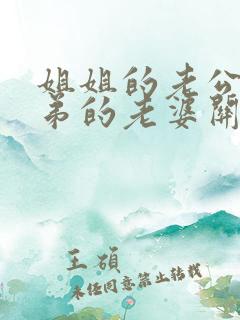 姐姐的老公
弟的老婆關
王碩
未经同意禁止转载